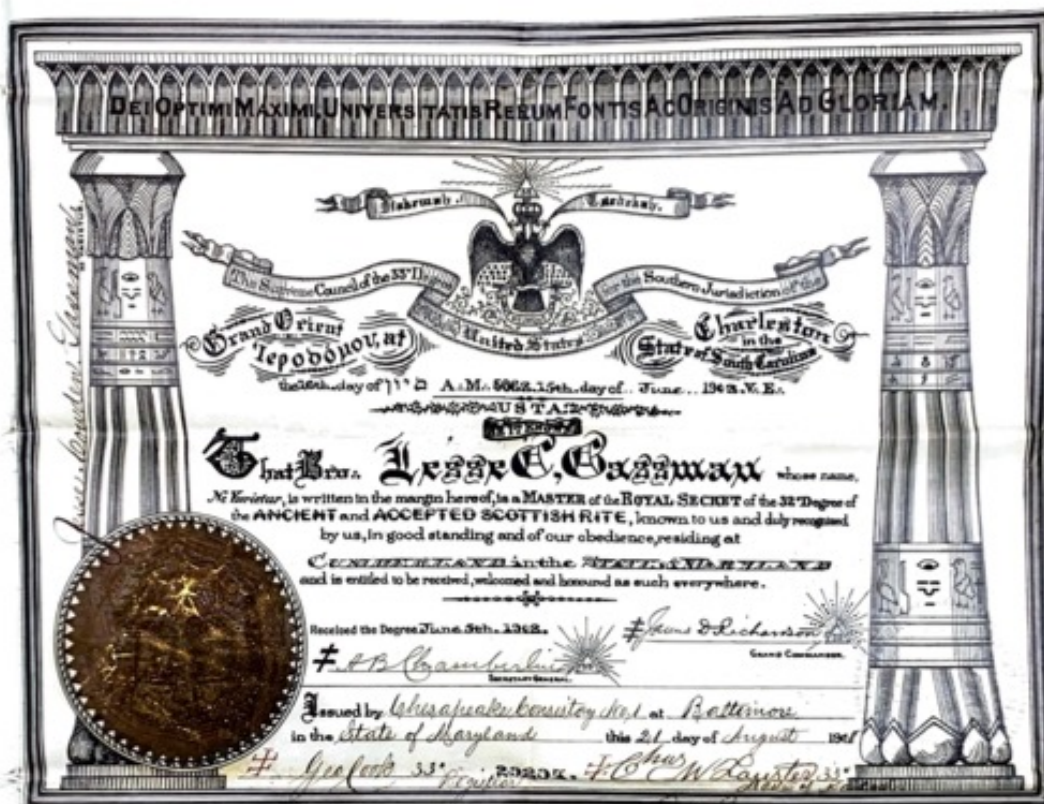 DEI OPTIMI MAXIMI, UNIVERSITATIS RERUM FONTIS AC ORIGINIS AD GLORIAM.
The Supreme Council of the 33d Degree for the Southern Jurisdiction of the
United States
Grand Orient at Charleston in the State of South Carolina
the day of A∴M∴ 15th day of June V∴E∴
That Bro∴ C. Gassman whose name,
Ne Varietur, is written in the margin hereof, is a MASTER of the ROYAL SECRET of the 32° Degree of
the ANCIENT and ACCEPTED SCOTTISH RITE, known to us and duly recognised
by us, in good standing and of our obedience, residing at
CUMBERLAND in the STATE of MARYLAND
and is entitled to be received, welcomed and honoured as such everywhere.
Received the Degree June
James D Richardson
GRAND COMMANDER.
A B Chamberlin
SECRETARY GENERAL.
Issued by Chesapeake Consistory No. 1 at Baltimore
in the State of Maryland this 21 day of August
Geo Cook 33° Registrar
33°